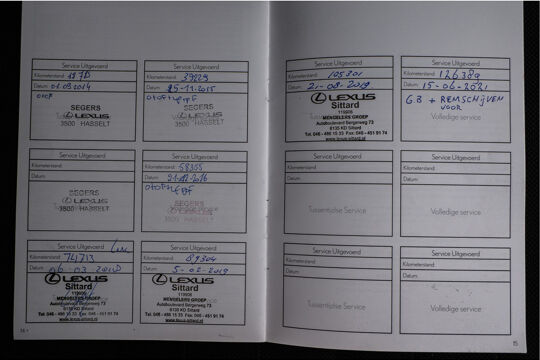 Service Uitgevoerd
Kilometerstand:
Datum: 01.09.2014
SEGERS
LEXUS
3500 HASSELT
Service Uitgevoerd
Kilometerstand: 39229
Datum: 25-11-2015
SEGERS
LEXUS
3500 HASSELT
Service Uitgevoerd
Kilometerstand:
Datum:
SEGERS
LEXUS
3500 HASSELT
Service Uitgevoerd
Kilometerstand: 58355
Datum:
SEGERS
3500 HASSELT
Service Uitgevoerd
Kilometerstand: 74713
Datum:
LEXUS
Sittard
119906
MENGELERS GROEP
Autoboulevard Bergerweg 73
6135 KD Sittard
Tel. 046 - 486 15 33 Fax 046 - 451 91 74
www.lexus-sittard.nl
Service Uitgevoerd
Kilometerstand: 89304
Datum: 5-02-2019
LEXUS
Sittard
119906
MENGELERS GROEP
Autoboulevard Bergerweg 73
6135 KD Sittard
Tel. 046 - 486 15 33 Fax 046 - 451 91 74
www.lexus-sittard.nl
Service Uitgevoerd
Kilometerstand: 105301
Datum: 21-08-2019
LEXUS
Sittard
119906
MENGELERS GROEP
Autoboulevard Bergerweg 73
6135 KD Sittard
Tel. 046 - 486 15 33 Fax 046 - 451 91 74
www.lexus-sittard.nl
Service Uitgevoerd
Kilometerstand: 126389
Datum: 15-06-2021
G.B + REMSCHIJVEN
VOOR
Volledige service
Service Uitgevoerd
Kilometerstand:
Datum:
Tussentijdse Service
Service Uitgevoerd
Kilometerstand:
Datum:
Volledige service
Service Uitgevoerd
Kilometerstand:
Datum:
Tussentijdse Service
Service Uitgevoerd
Kilometerstand:
Datum:
Volledige service
15